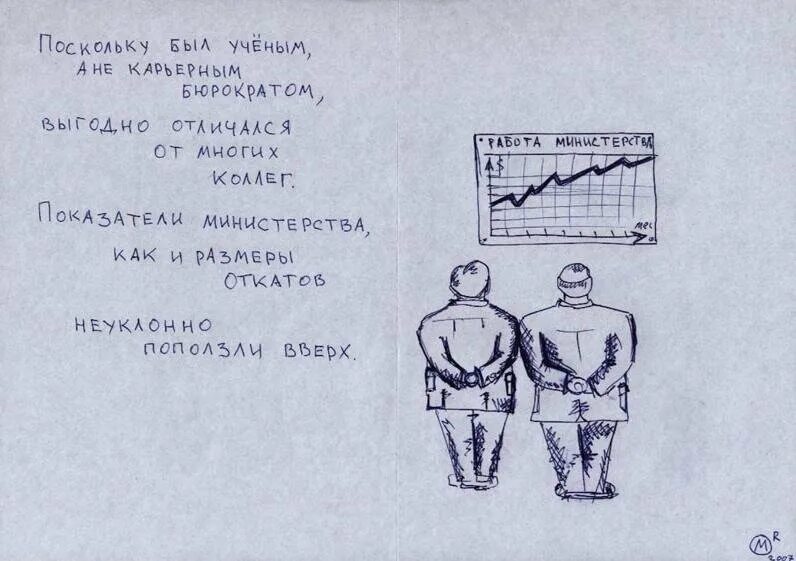 Поскольку был учёным,
а не карьерным
бюрократом,
выгодно отличался
от многих
коллег.
Показатели министерства,
как и размеры
откатов
неуклонно
поползли вверх.
Работа министерства
$
мес
M R
2007